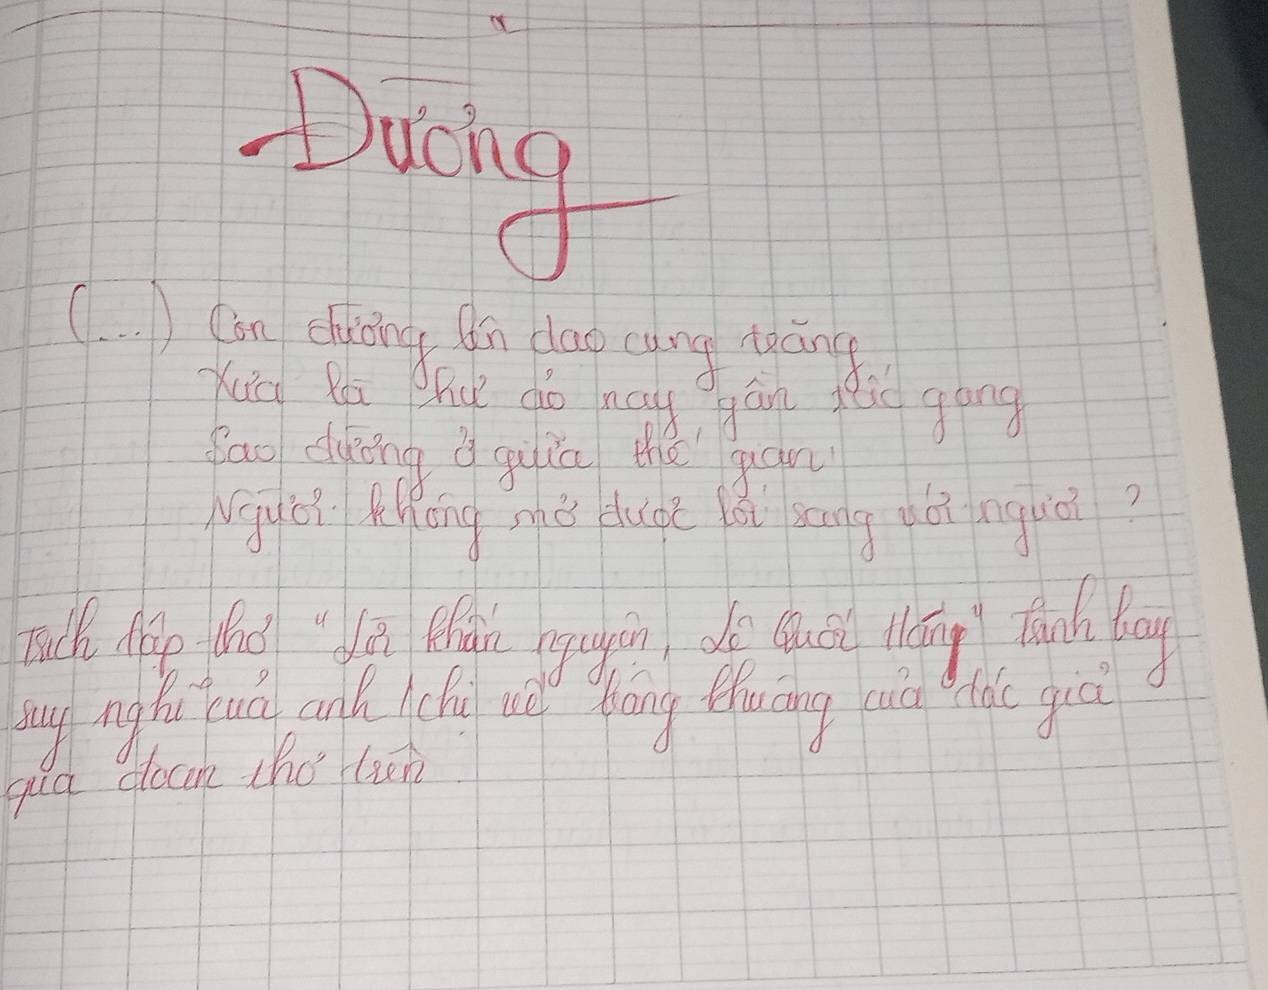 Đường
(...) Con đường lên dạo cung trăng
Xưa là hư ảo nay gần tấc gang
Sao đường ở giữa thế gian
Người không mở được lối sang với người?
Trích tập thơ "Lời khấn nguyện, Lê Quốc Hán" Trình bày
suy nghĩ của anh/chị về thông của tác giả
qua đoạn thơ trên